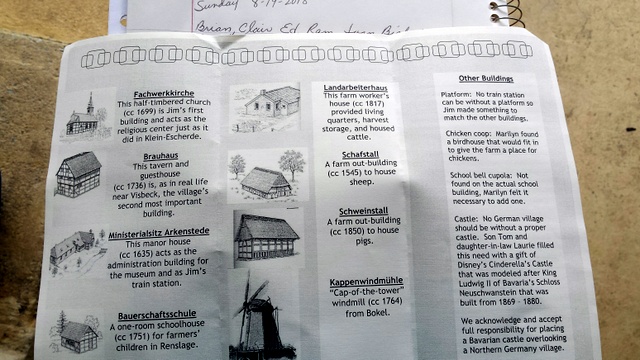 Sunday 8-19-2018
Brian, Clair Ed Ram
Fachwerkkirche
This half-timbered church
(cc 1699) is Jim's first
building and acts as the
religious center just as it
did in Klein-Escherde.
Brauhaus
This tavern and
guesthouse
(cc 1736) is, as in real life
near Visbeck, the village's
second most important
building.
Ministerialsitz Arkenstede
This manor house
(cc 1635) acts as the
administration building for
the museum and as Jim's
train station.
Bauerschaftsschule
A one-room schoolhouse
(cc 1751) for farmers'
children in Renslage.
Landarbeiterhaus
This farm worker's
house (cc 1817)
provided living
quarters, harvest
storage, and housed
cattle.
Schafstall
A farm out-building
(cc 1545) to house
sheep.
Schweinstall
A farm out-building
(cc 1850) to house
pigs.
Kappenwindmühle
"Cap-of-the-tower"
windmill (cc 1764)
from Bokel.
Other Buildings
Platform: No train station
can be without a platform so
Jim made something to
match the other buildings.
Chicken coop: Marilyn found
a birdhouse that would fit in
to give the farm a place for
chickens.
School bell cupola: Not
found on the actual school
building, Marilyn felt it
necessary to add one.
Castle: No German village
should be without a proper
castle. Son Tom and
daughter-in-law Laurie filled
this need with a gift of
Disney's Cinderella's Castle
that was modeled after King
Ludwig II of Bavaria's Schloss
Neuschwanstein that was
built from 1869 - 1880.
We acknowledge and accept
full responsibility for placing
a Bavarian castle overlooking
a Northern Germany village.